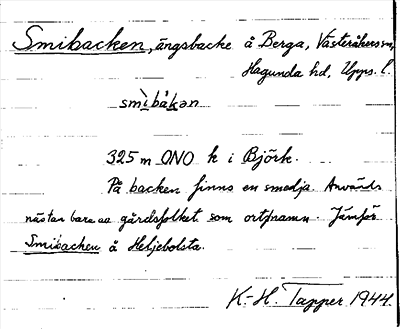 Smibacken, ängsbacke å Berga, Västeråkers sn,
Hagunda hd, Upps. l.
smìbákən
325 m ONO k i Björk.
På backen finns en smedja. Används
nästan bara av gårdsfolket som ortnamn. Jämför
Smibacken å Heljebolsta.
K.-H. Tapper 1944